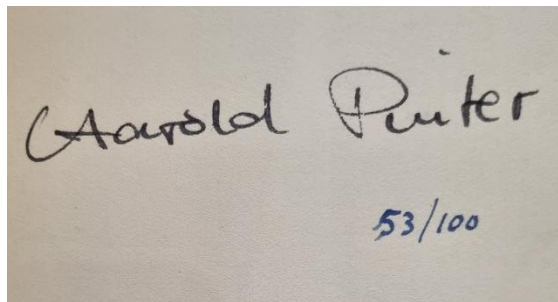 Harold Pinter
53/100